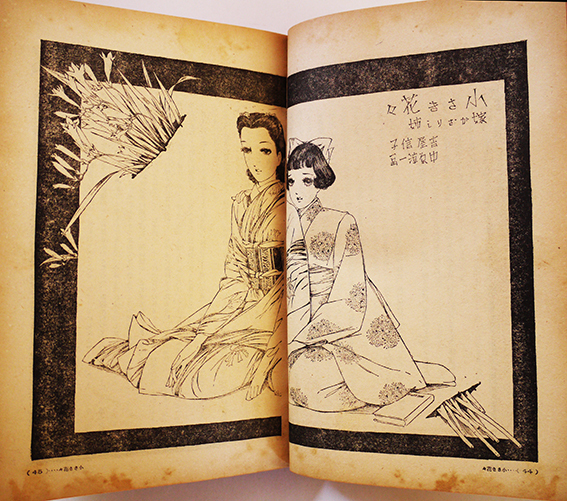 小さき花々
嫁がざりし姉
吉屋信子
中原淳一画
小さき花々・・・(44)
小さき花々・・・(45)